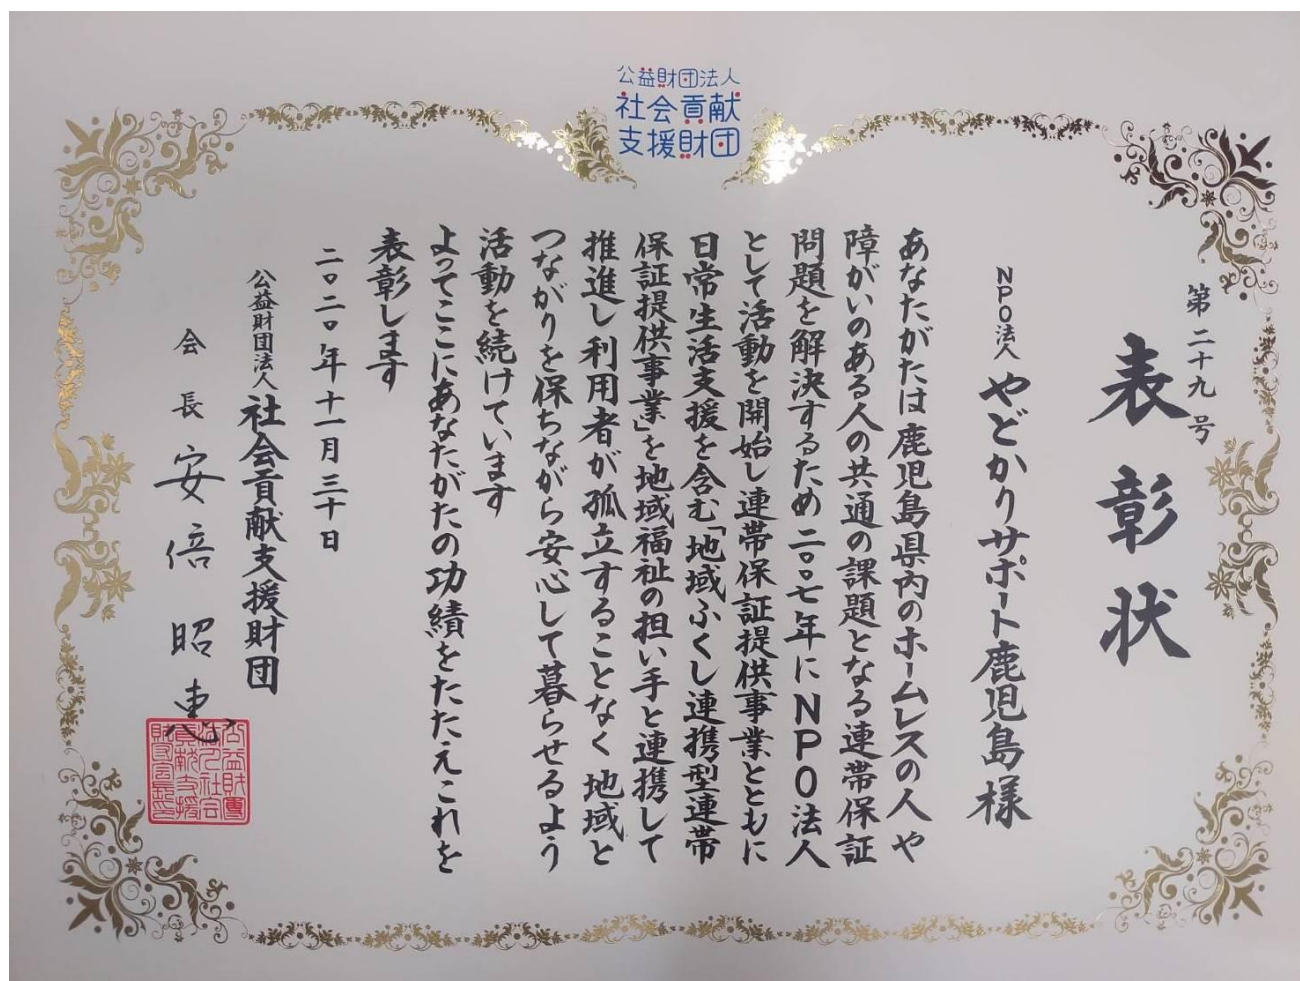 公益財団法人
社会貢献
支援財団
第二十九号
表彰状
NPO法人 やどかりサポート鹿児島様
あなたがたは鹿児島県内のホームレスの人や
障がいのある人の共通の課題となる連帯保証
問題を解決するため二〇〇七年にNPO法人
として活動を開始し連帯保証提供事業とともに
日常生活支援を含む「地域ふくし連携型連帯
保証提供事業」を地域福祉の担い手と連携して
推進し利用者が孤立することなく地域と
つながりを保ちながら安心して暮らせるよう
活動を続けています
よってここにあなたがたの功績をたたえこれを
表彰します
二〇二〇年十一月三十日
公益財団法人 社会貢献支援財団
会長 安倍昭恵